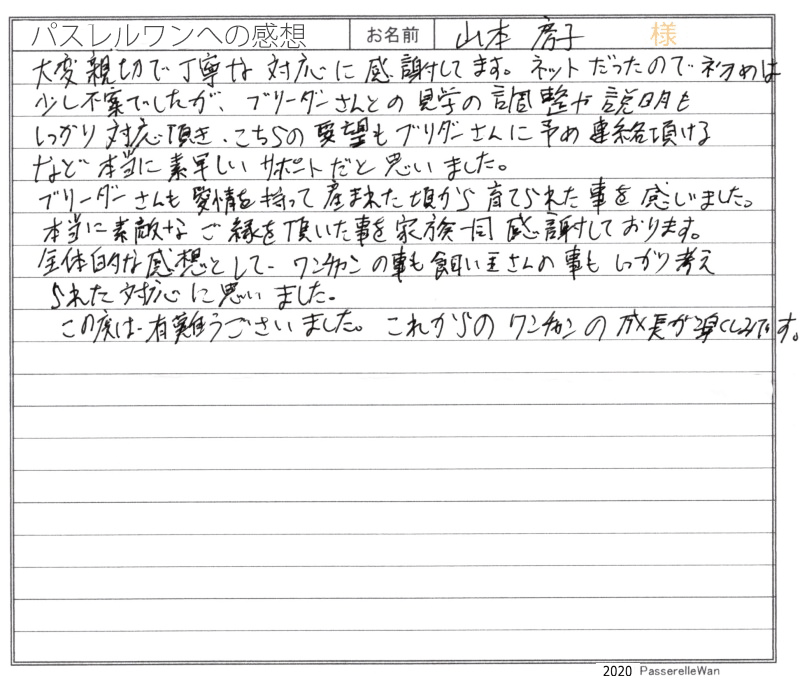 パスレルワンへの感想 お名前 山本 房子 様
大変親切で丁寧な対応に感謝してます。ネットだったので初めは
少し不案でしたが、ブリーダーさんとの見学の調整や説明も
しっかり対応頂き、こちらの要望もブリダーさんに予め連絡頂ける
など本当に素早しいサポートだと思いました。
ブリーダーさんも愛情を持って産まれた頃から育てられた事を感じました。
本当に素敵なご縁を頂いた事を家族一同感謝しております。
全体的な感想として、ワンチャンの事も飼い主さんの事もしっかり考え
られた対応に思いました。
この度は有難うございました。これからのワンチャンの成長が楽しみです。
2020 PasserelleWan